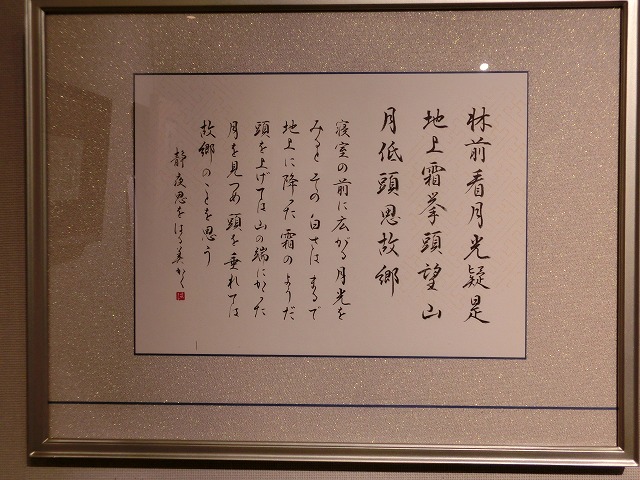 牀前看月光疑是
地上霜挙頭望山
月低頭思故郷
寝室の前に広がる月光を
みると その白さは まるで
地上に降った霜のようだ
頭を上げては山の端にかかった
月を見つめ 頭を垂れては
故郷のことを思う
静夜思を はる美かく